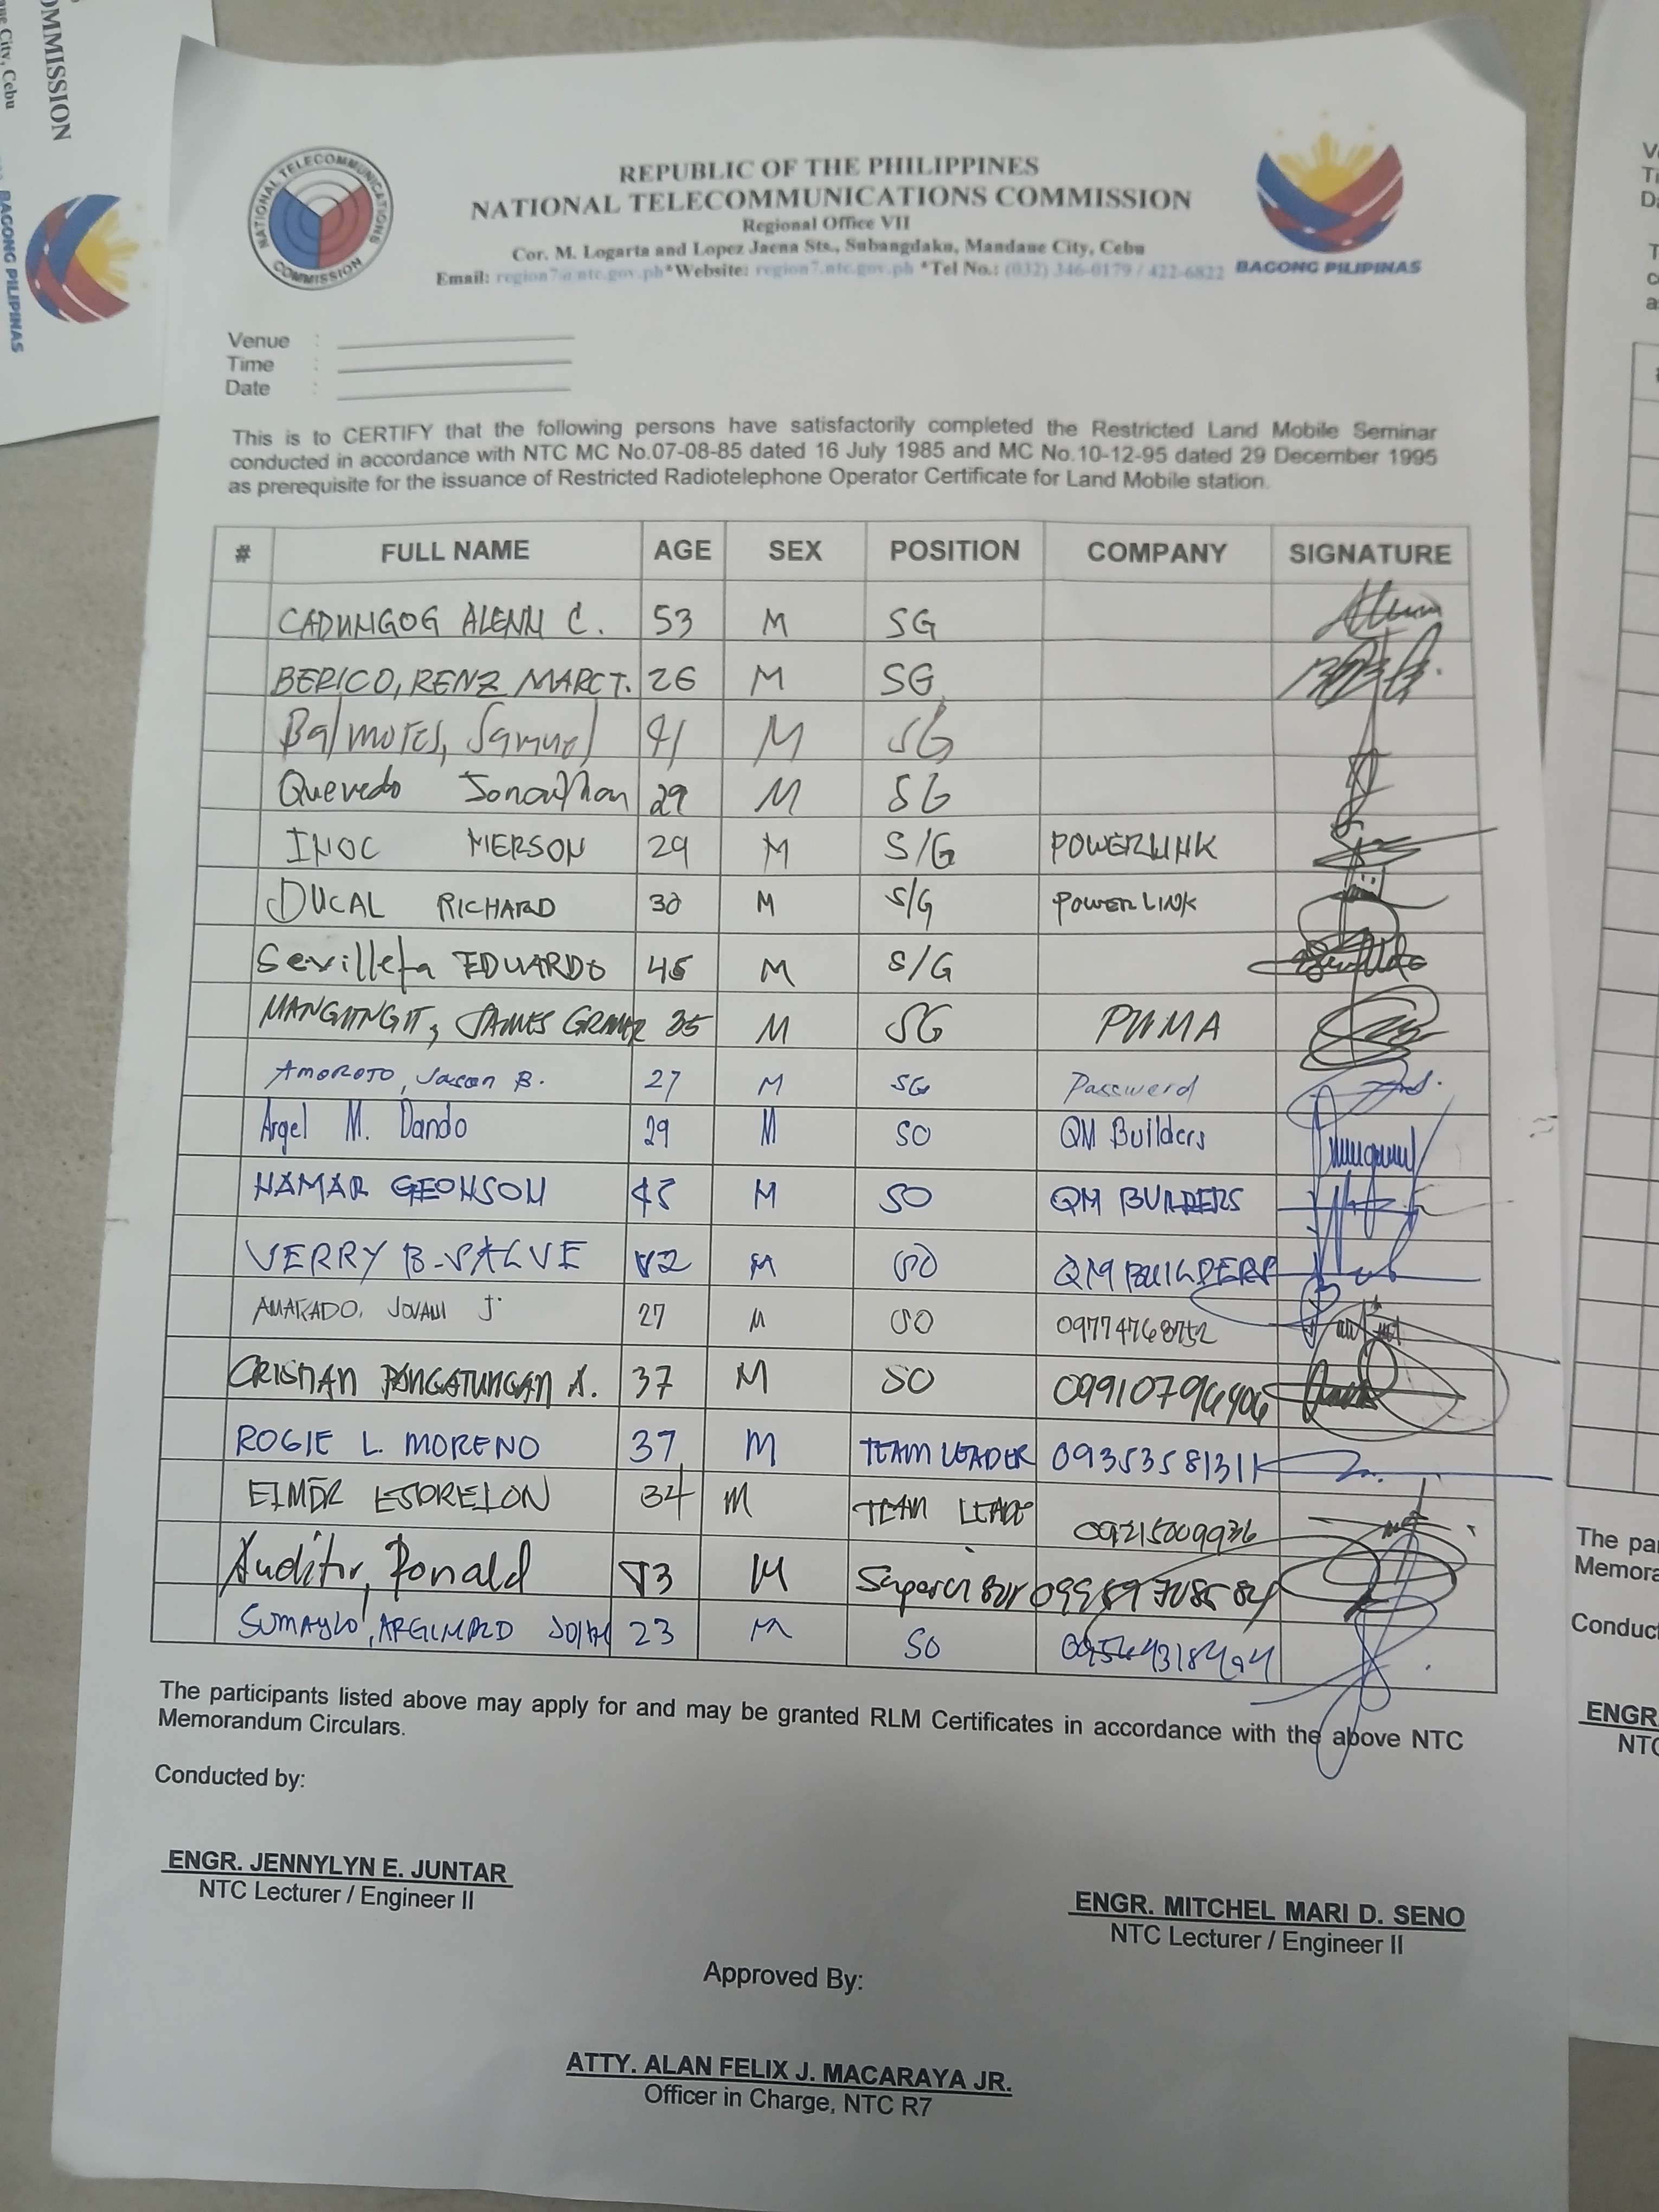 OMMISSION
ue City, Cebu
BAGONG PILIPINAS
NATIONAL TELECOMMUNICATIONS COMMISSION
REPUBLIC OF THE PHILIPPINES
NATIONAL TELECOMMUNICATIONS COMMISSION
Regional Office VII
Cor. M. Logarta and Lopez Jaena Sts., Subangdaku, Mandaue City, Cebu
Email: region7@ntc.gov.ph*Website: region7.ntc.gov.ph *Tel No.: (032) 346-0179 / 422-6822
BAGONG PILIPINAS
Venue :
Time :
Date :
This is to CERTIFY that the following persons have satisfactorily completed the Restricted Land Mobile Seminar
conducted in accordance with NTC MC No.07-08-85 dated 16 July 1985 and MC No.10-12-95 dated 29 December 1995
as prerequisite for the issuance of Restricted Radiotelephone Operator Certificate for Land Mobile station.
# FULL NAME AGE SEX POSITION COMPANY SIGNATURE
CADUNGOG ALENN C. 53 M SG
BERICO, RENZ MARC T. 26 M SG
Balmores, Samuel 41 M SG
Quevedo Jonathan 29 M SG
INOC MERSON 29 M S/G POWERLINK
DUCAL RICHARD 30 M S/G POWERLINK
Sevilleja EDUARDO 45 M S/G
JAMES 35 M SG PUMA
AMOROTO, Jason B. 27 M SG Password
Argel M. Dando 29 M SO QM Builders
HAMAR GEONSON 45 M SO QM BUILDERS
VERRY B. SALVE 42 M SO QM BUILDERS
JOVANI J. 27 M SO 09774768752
CRISTIAN PANGATUNGAN A. 37 M SO
ROGIE L. MORENO 37 M TEAM LEADER 09353581311
34 M TEAM 09215009936
Auditor, Ronald 43 M Supervisor
SUMAYLO, 23 M SO
The participants listed above may apply for and may be granted RLM Certificates in accordance with the above NTC
Memorandum Circulars.
Conducted by:
ENGR. JENNYLYN E. JUNTAR
NTC Lecturer / Engineer II
ENGR. MITCHEL MARI D. SENO
NTC Lecturer / Engineer II
Approved By:
ATTY. ALAN FELIX J. MACARAYA JR.
Officer in Charge, NTC R7
The pa
Memora
Conduc
ENGR
NTC